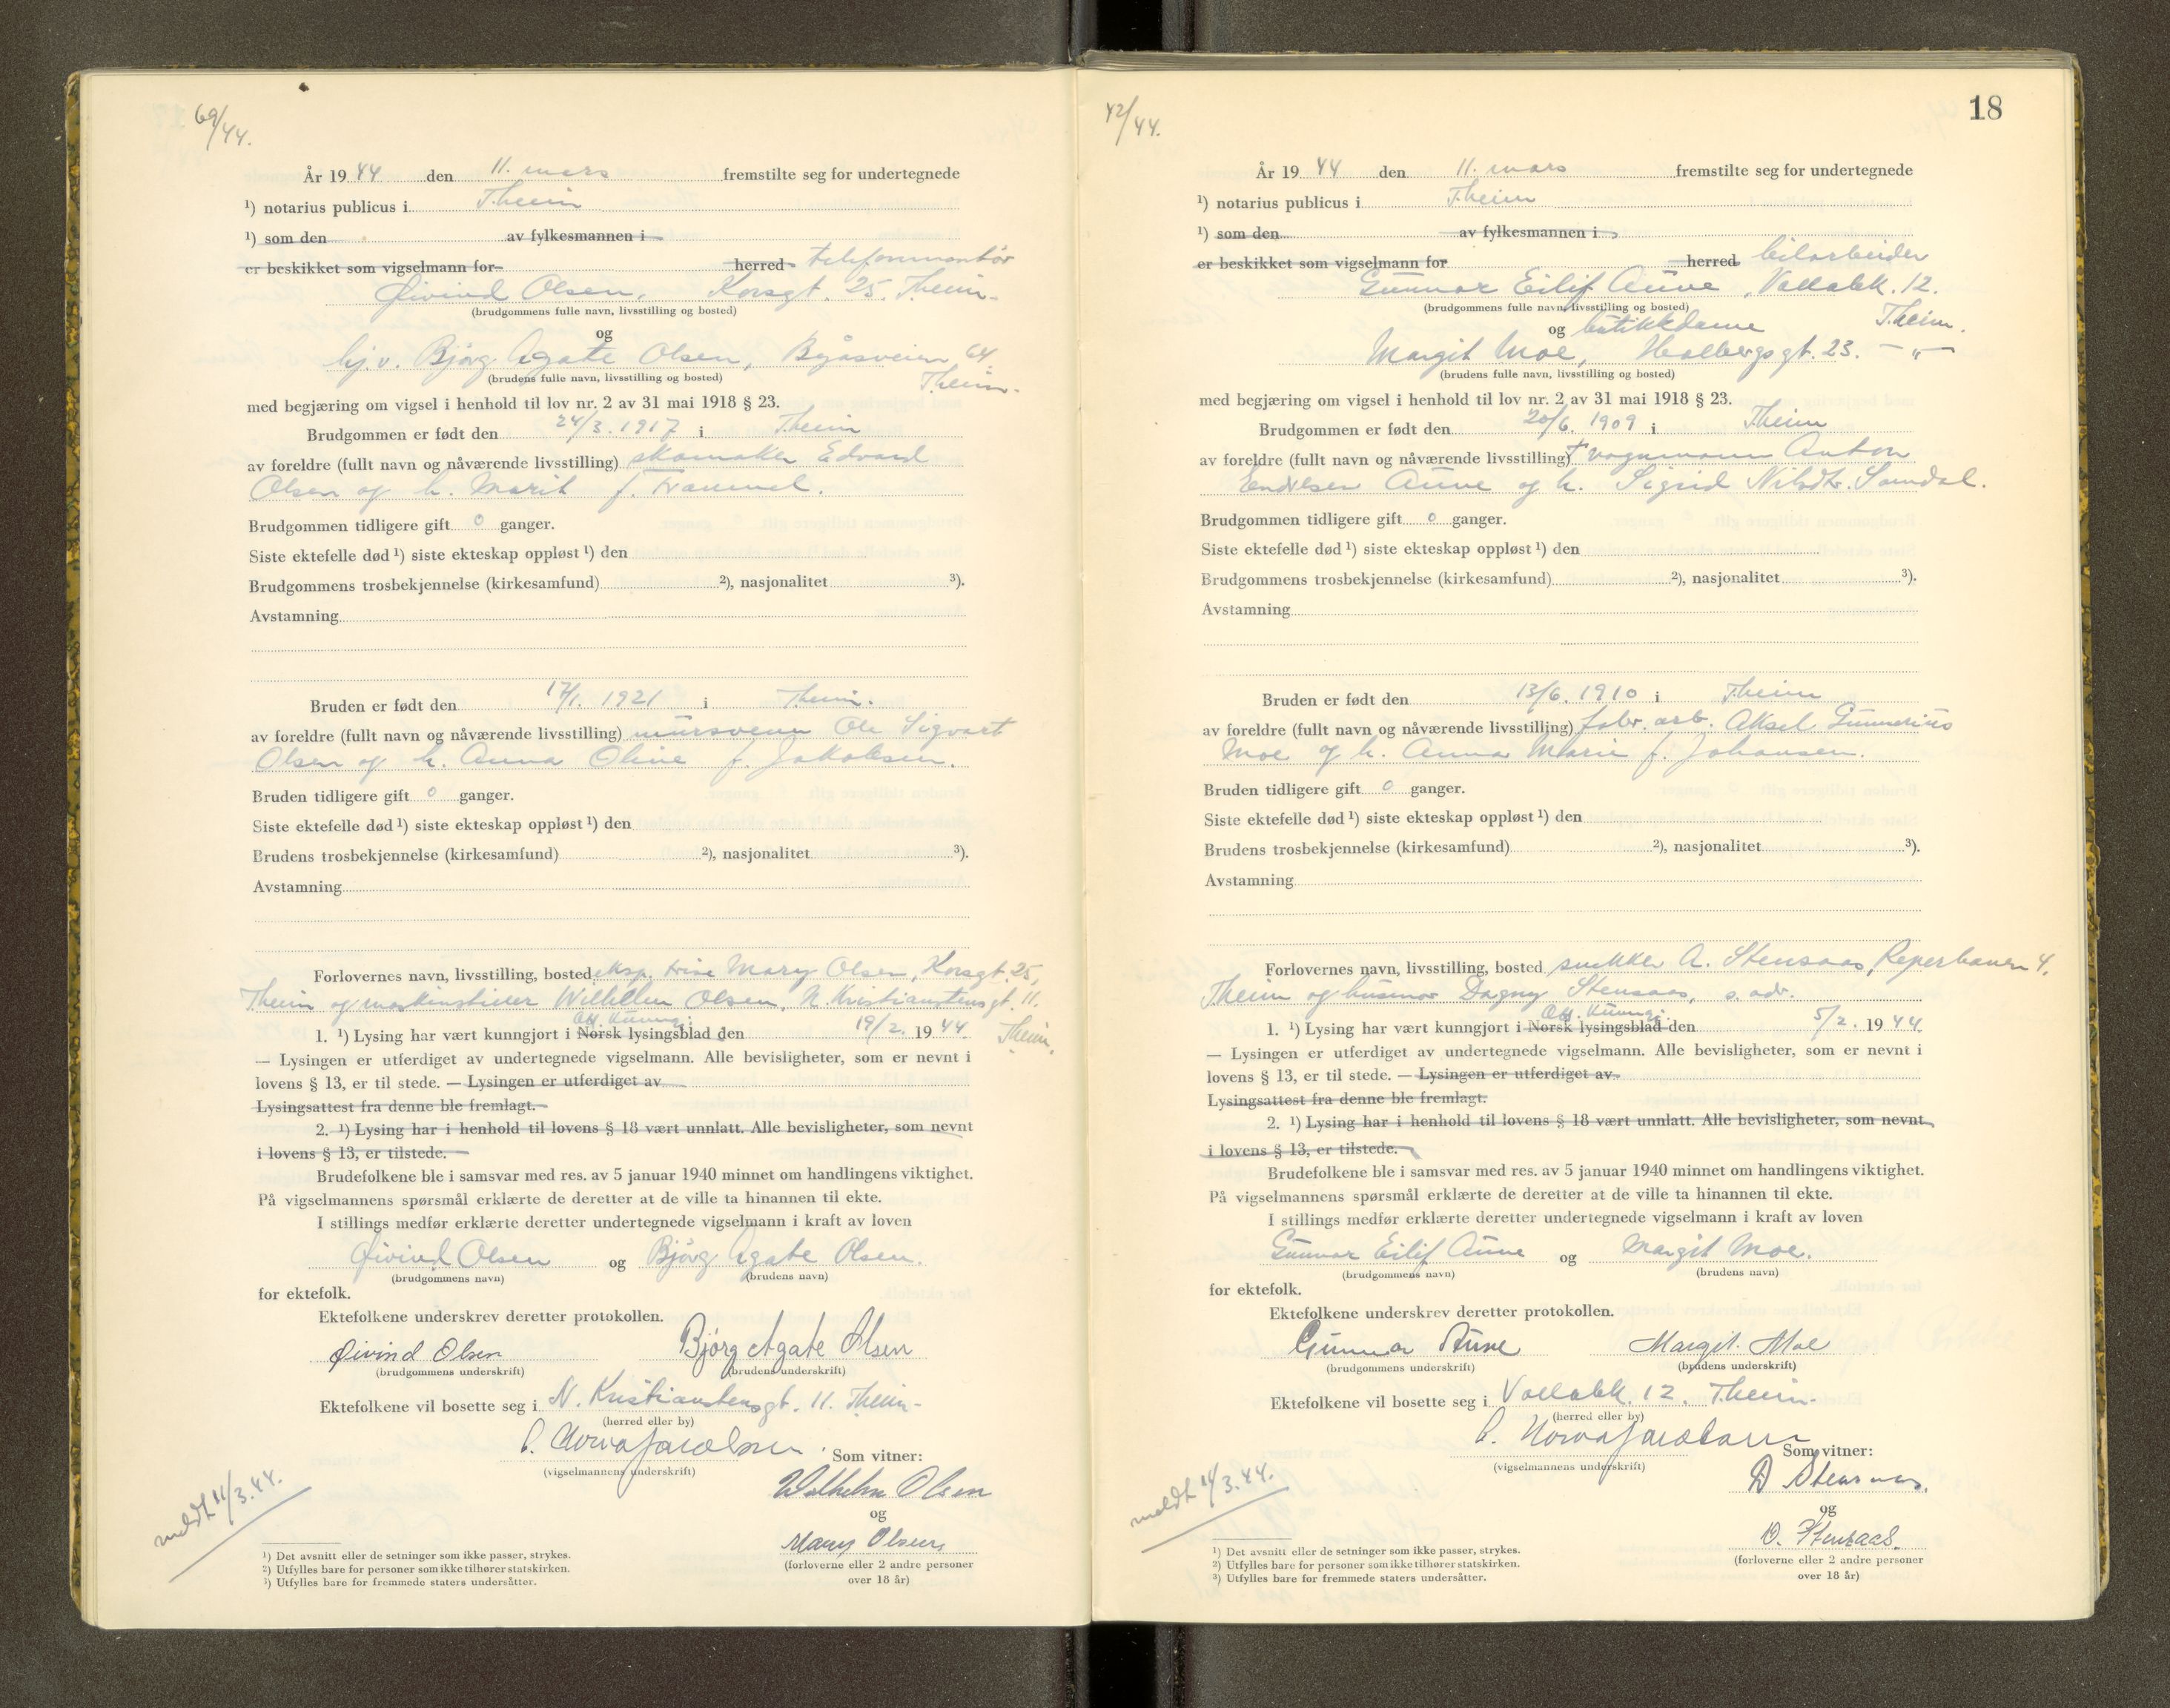 69/44.
År 1944 den 11. mars fremstilte seg for undertegnede
¹) notarius publicus i T.heim
¹) som den av fylkesmannen i
er beskikket som vigselmann for herred telefonmontør
Øivind Olsen, Korsgt. 25. T.heim.
(brudgommens fulle navn, livsstilling og bosted)
og
hj.v. Bjørg Agate Olsen, Byåsveien 64.
(brudens fulle navn, livsstilling og bosted)
T.heim.
med begjæring om vigsel i henhold til lov nr. 2 av 31 mai 1918 § 23.
Brudgommen er født den 24/3. 1917 i T.heim
av foreldre (fullt navn og nåværende livsstilling) skomaker Edvard
Olsen og h. Marit f.
Brudgommen tidligere gift 0 ganger.
Siste ektefelle død ¹) siste ekteskap oppløst ¹) den
Brudgommens trosbekjennelse (kirkesamfund) ²), nasjonalitet ³).
Avstamning
Bruden er født den 17/1. 1921 i T.heim.
av foreldre (fullt navn og nåværende livsstilling) mursvenn Ole Sigvart
Olsen og h. Anna Oline f. Jakobsen.
Bruden tidligere gift 0 ganger.
Siste ektefelle død ¹) siste ekteskap oppløst ¹) den
Brudens trosbekjennelse (kirkesamfund) ²), nasjonalitet ³).
Avstamning
Forlovernes navn, livsstilling, bosted eksp. trise Mary Olsen, Korsgt. 25,
T.heim og Wilhelm Olsen, N. Kristianstensgt. 11.
Off. kunngj.
1. ¹) Lysing har vært kunngjort i Norsk lysingsblad den 19/2. 1944. T.heim.
— Lysingen er utferdiget av undertegnede vigselmann. Alle bevisligheter, som er nevnt i
lovens § 13, er til stede. — Lysingen er utferdiget av
Lysingsattest fra denne ble fremlagt.
2. ¹) Lysing har i henhold til lovens § 18 vært unnlatt. Alle bevisligheter, som nevnt
i lovens § 13, er tilstede.
Brudefolkene ble i samsvar med res. av 5 januar 1940 minnet om handlingens viktighet.
På vigselmannens spørsmål erklærte de deretter at de ville ta hinannen til ekte.
I stillings medfør erklærte deretter undertegnede vigselmann i kraft av loven
Øivind Olsen og Bjørg Agate Olsen.
(brudgommens navn) (brudens navn)
for ektefolk.
Ektefolkene underskrev deretter protokollen.
Øivind Olsen Bjørg Agate Olsen
(brudgommens underskrift) (brudens underskrift)
Ektefolkene vil bosette seg i N. Kristianstensgt. 11. T.heim.
(herred eller by)
Som vitner:
(vigselmannens underskrift)
Wilhelm Olsen
og
Mary Olsen
(forloverne eller 2 andre personer
over 18 år)
meldt 11/3.44.
¹) Det avsnitt eller de setninger som ikke passer, strykes.
²) Utfylles bare for personer som ikke tilhører statskirken.
³) Utfylles bare for fremmede staters undersåtter.
42/44.
18
År 1944 den 11. mars fremstilte seg for undertegnede
¹) notarius publicus i T.heim
¹) som den av fylkesmannen i
er beskikket som vigselmann for herred bilarbeider
Gunnar Eilif Aune, Vollabk. 12.
(brudgommens fulle navn, livsstilling og bosted)
og butikkdame T.heim.
Margit Moe, Holbergsgt. 23. — „ —
(brudens fulle navn, livsstilling og bosted)
med begjæring om vigsel i henhold til lov nr. 2 av 31 mai 1918 § 23.
Brudgommen er født den 20/6. 1909 i T.heim
av foreldre (fullt navn og nåværende livsstilling) † vognmann Anton
Endresen Aune og h. Sigrid Nilsdtr. Somdal.
Brudgommen tidligere gift 0 ganger.
Siste ektefelle død ¹) siste ekteskap oppløst ¹) den
Brudgommens trosbekjennelse (kirkesamfund) ²), nasjonalitet ³).
Avstamning
Bruden er født den 13/6. 1910 i T.heim
av foreldre (fullt navn og nåværende livsstilling) fabr. arb. Aksel Gunnerius
Moe og h. Anna Marie f. Johansen.
Bruden tidligere gift 0 ganger.
Siste ektefelle død ¹) siste ekteskap oppløst ¹) den
Brudens trosbekjennelse (kirkesamfund) ²), nasjonalitet ³).
Avstamning
Forlovernes navn, livsstilling, bosted snekker A. Stensaas, Reperbanen 4,
T.heim og husmor Dagny Stensaas, s. adr.
Off. Kunngj.
1. ¹) Lysing har vært kunngjort i Norsk lysingsblad den 5/2. 1944
— Lysingen er utferdiget av undertegnede vigselmann. Alle bevisligheter, som er nevnt i
lovens § 13, er til stede. — Lysingen er utferdiget av
Lysingsattest fra denne ble fremlagt.
2. ¹) Lysing har i henhold til lovens § 18 vært unnlatt. Alle bevisligheter, som nevnt
i lovens § 13, er tilstede.
Brudefolkene ble i samsvar med res. av 5 januar 1940 minnet om handlingens viktighet.
På vigselmannens spørsmål erklærte de deretter at de ville ta hinannen til ekte.
I stillings medfør erklærte deretter undertegnede vigselmann i kraft av loven
Gunnar Eilif Aune og Margit Moe.
(brudgommens navn) (brudens navn)
for ektefolk.
Ektefolkene underskrev deretter protokollen.
Gunnar Aune Margit Moe
(brudgommens underskrift) (brudens underskrift)
Ektefolkene vil bosette seg i Vollabk. 12. T.heim.
(herred eller by)
Som vitner:
(vigselmannens underskrift)
D Stensaas.
og
O. Stensaas.
(forloverne eller 2 andre personer
over 18 år)
meldt 11/3.44.
¹) Det avsnitt eller de setninger som ikke passer, strykes.
²) Utfylles bare for personer som ikke tilhører statskirken.
³) Utfylles bare for fremmede staters undersåtter.